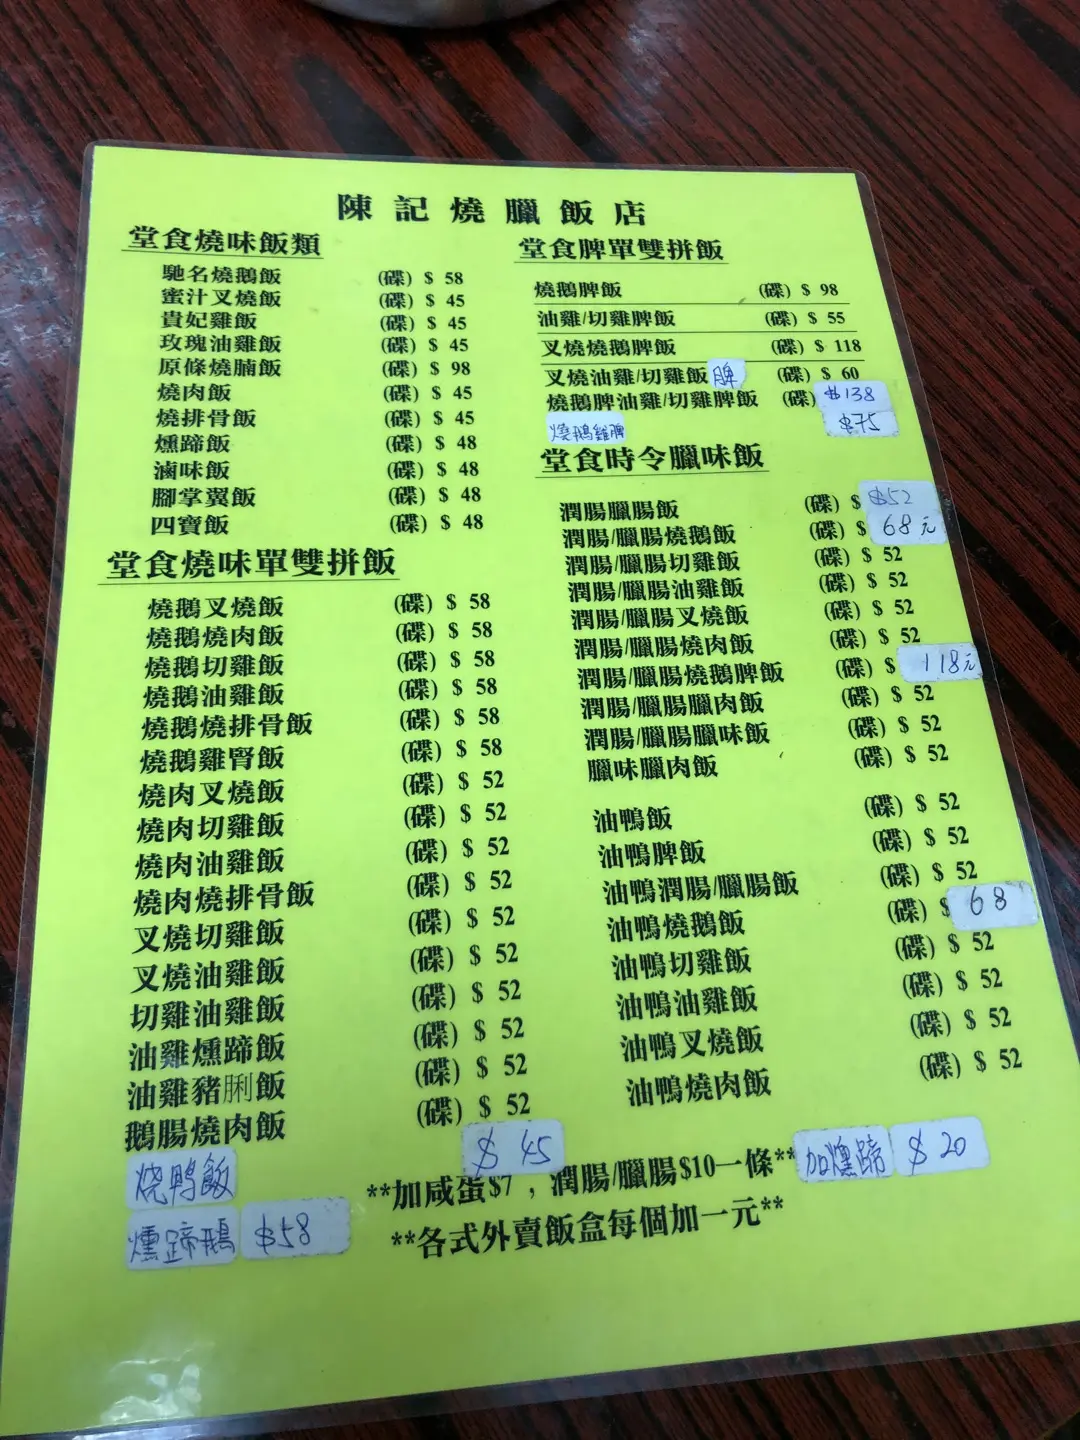 陳記燒臘飯店
堂食燒味飯類
馳名燒鵝飯 (碟) $ 58
蜜汁叉燒飯 (碟) $ 45
貴妃雞飯 (碟) $ 45
玫瑰油雞飯 (碟) $ 45
原條燒腩飯 (碟) $ 98
燒肉飯 (碟) $ 45
燒排骨飯 (碟) $ 45
燻蹄飯 (碟) $ 48
滷味飯 (碟) $ 48
腳掌翼飯 (碟) $ 48
四寶飯 (碟) $ 48
堂食燒味單雙拼飯
燒鵝叉燒飯 (碟) $ 58
燒鵝燒肉飯 (碟) $ 58
燒鵝切雞飯 (碟) $ 58
燒鵝油雞飯 (碟) $ 58
燒鵝燒排骨飯 (碟) $ 58
燒鵝雞腎飯 (碟) $ 58
燒肉叉燒飯 (碟) $ 52
燒肉切雞飯 (碟) $ 52
燒肉油雞飯 (碟) $ 52
燒肉燒排骨飯 (碟) $ 52
叉燒切雞飯 (碟) $ 52
叉燒油雞飯 (碟) $ 52
切雞油雞飯 (碟) $ 52
油雞燻蹄飯 (碟) $ 52
油雞豬脷飯 (碟) $ 52
鵝腸燒肉飯 (碟) $ 52
烧鸭飯 $ 45
燻蹄鵝 $58
堂食脾單雙拼飯
燒鵝脾飯 (碟) $ 98
油雞/切雞脾飯 (碟) $ 55
叉燒燒鵝脾飯 (碟) $ 118
叉燒油雞/切雞飯脾 (碟) $ 60
燒鵝脾油雞/切雞脾飯 (碟) $138
燒鵝雞脾 $75
堂食時令臘味飯
潤腸臘腸飯 (碟) $ $52
潤腸/臘腸燒鵝飯 (碟) $ 68元
潤腸/臘腸切雞飯 (碟) $ 52
潤腸/臘腸油雞飯 (碟) $ 52
潤腸/臘腸叉燒飯 (碟) $ 52
潤腸/臘腸燒肉飯 (碟) $ 52
潤腸/臘腸燒鵝脾飯 (碟) $ 118元
潤腸/臘腸臘肉飯 (碟) $ 52
潤腸/臘腸臘味飯 (碟) $ 52
臘味臘肉飯 (碟) $ 52
油鴨飯 (碟) $ 52
油鴨脾飯 (碟) $ 52
油鴨潤腸/臘腸飯 (碟) $ 52
油鴨燒鵝飯 (碟) $ 68
油鴨切雞飯 (碟) $ 52
油鴨油雞飯 (碟) $ 52
油鴨叉燒飯 (碟) $ 52
油鴨燒肉飯 (碟) $ 52
**加咸蛋$7，潤腸/臘腸$10一條** 加燻蹄 $ 20
**各式外賣飯盒每個加一元**